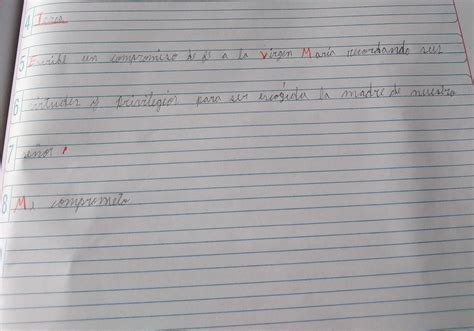 4 Tarea
5 Escribe un compromiso de fe a la Virgen María recordando sus
6 virtudes y privilegios para ser escogida la madre de nuestro
7 señor.
8 Me comprometo